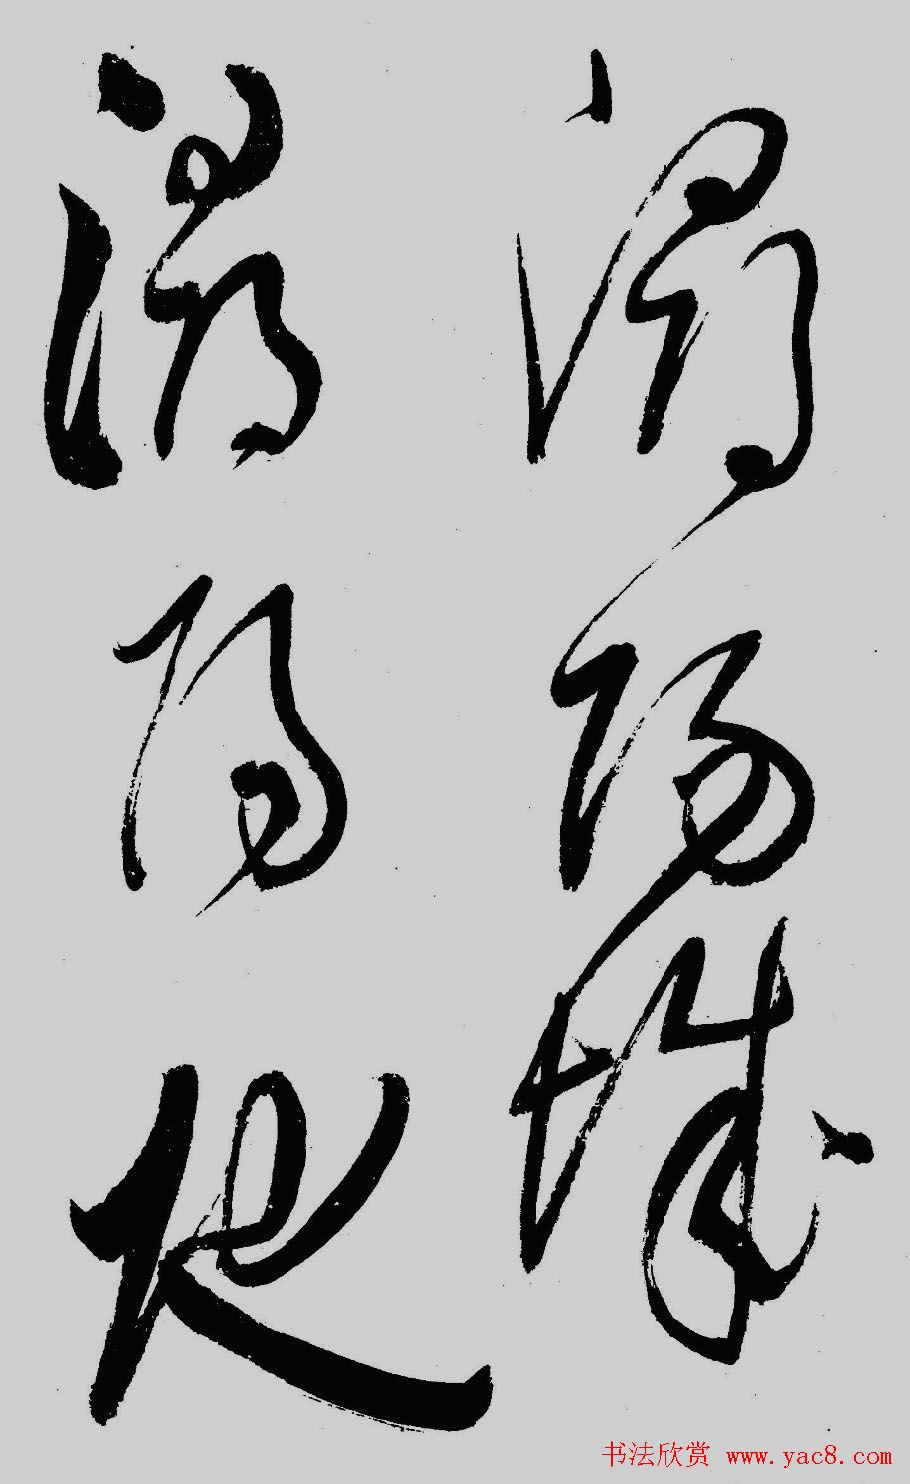 潯陽城
潯陽地
书法欣赏 www.yac8.com